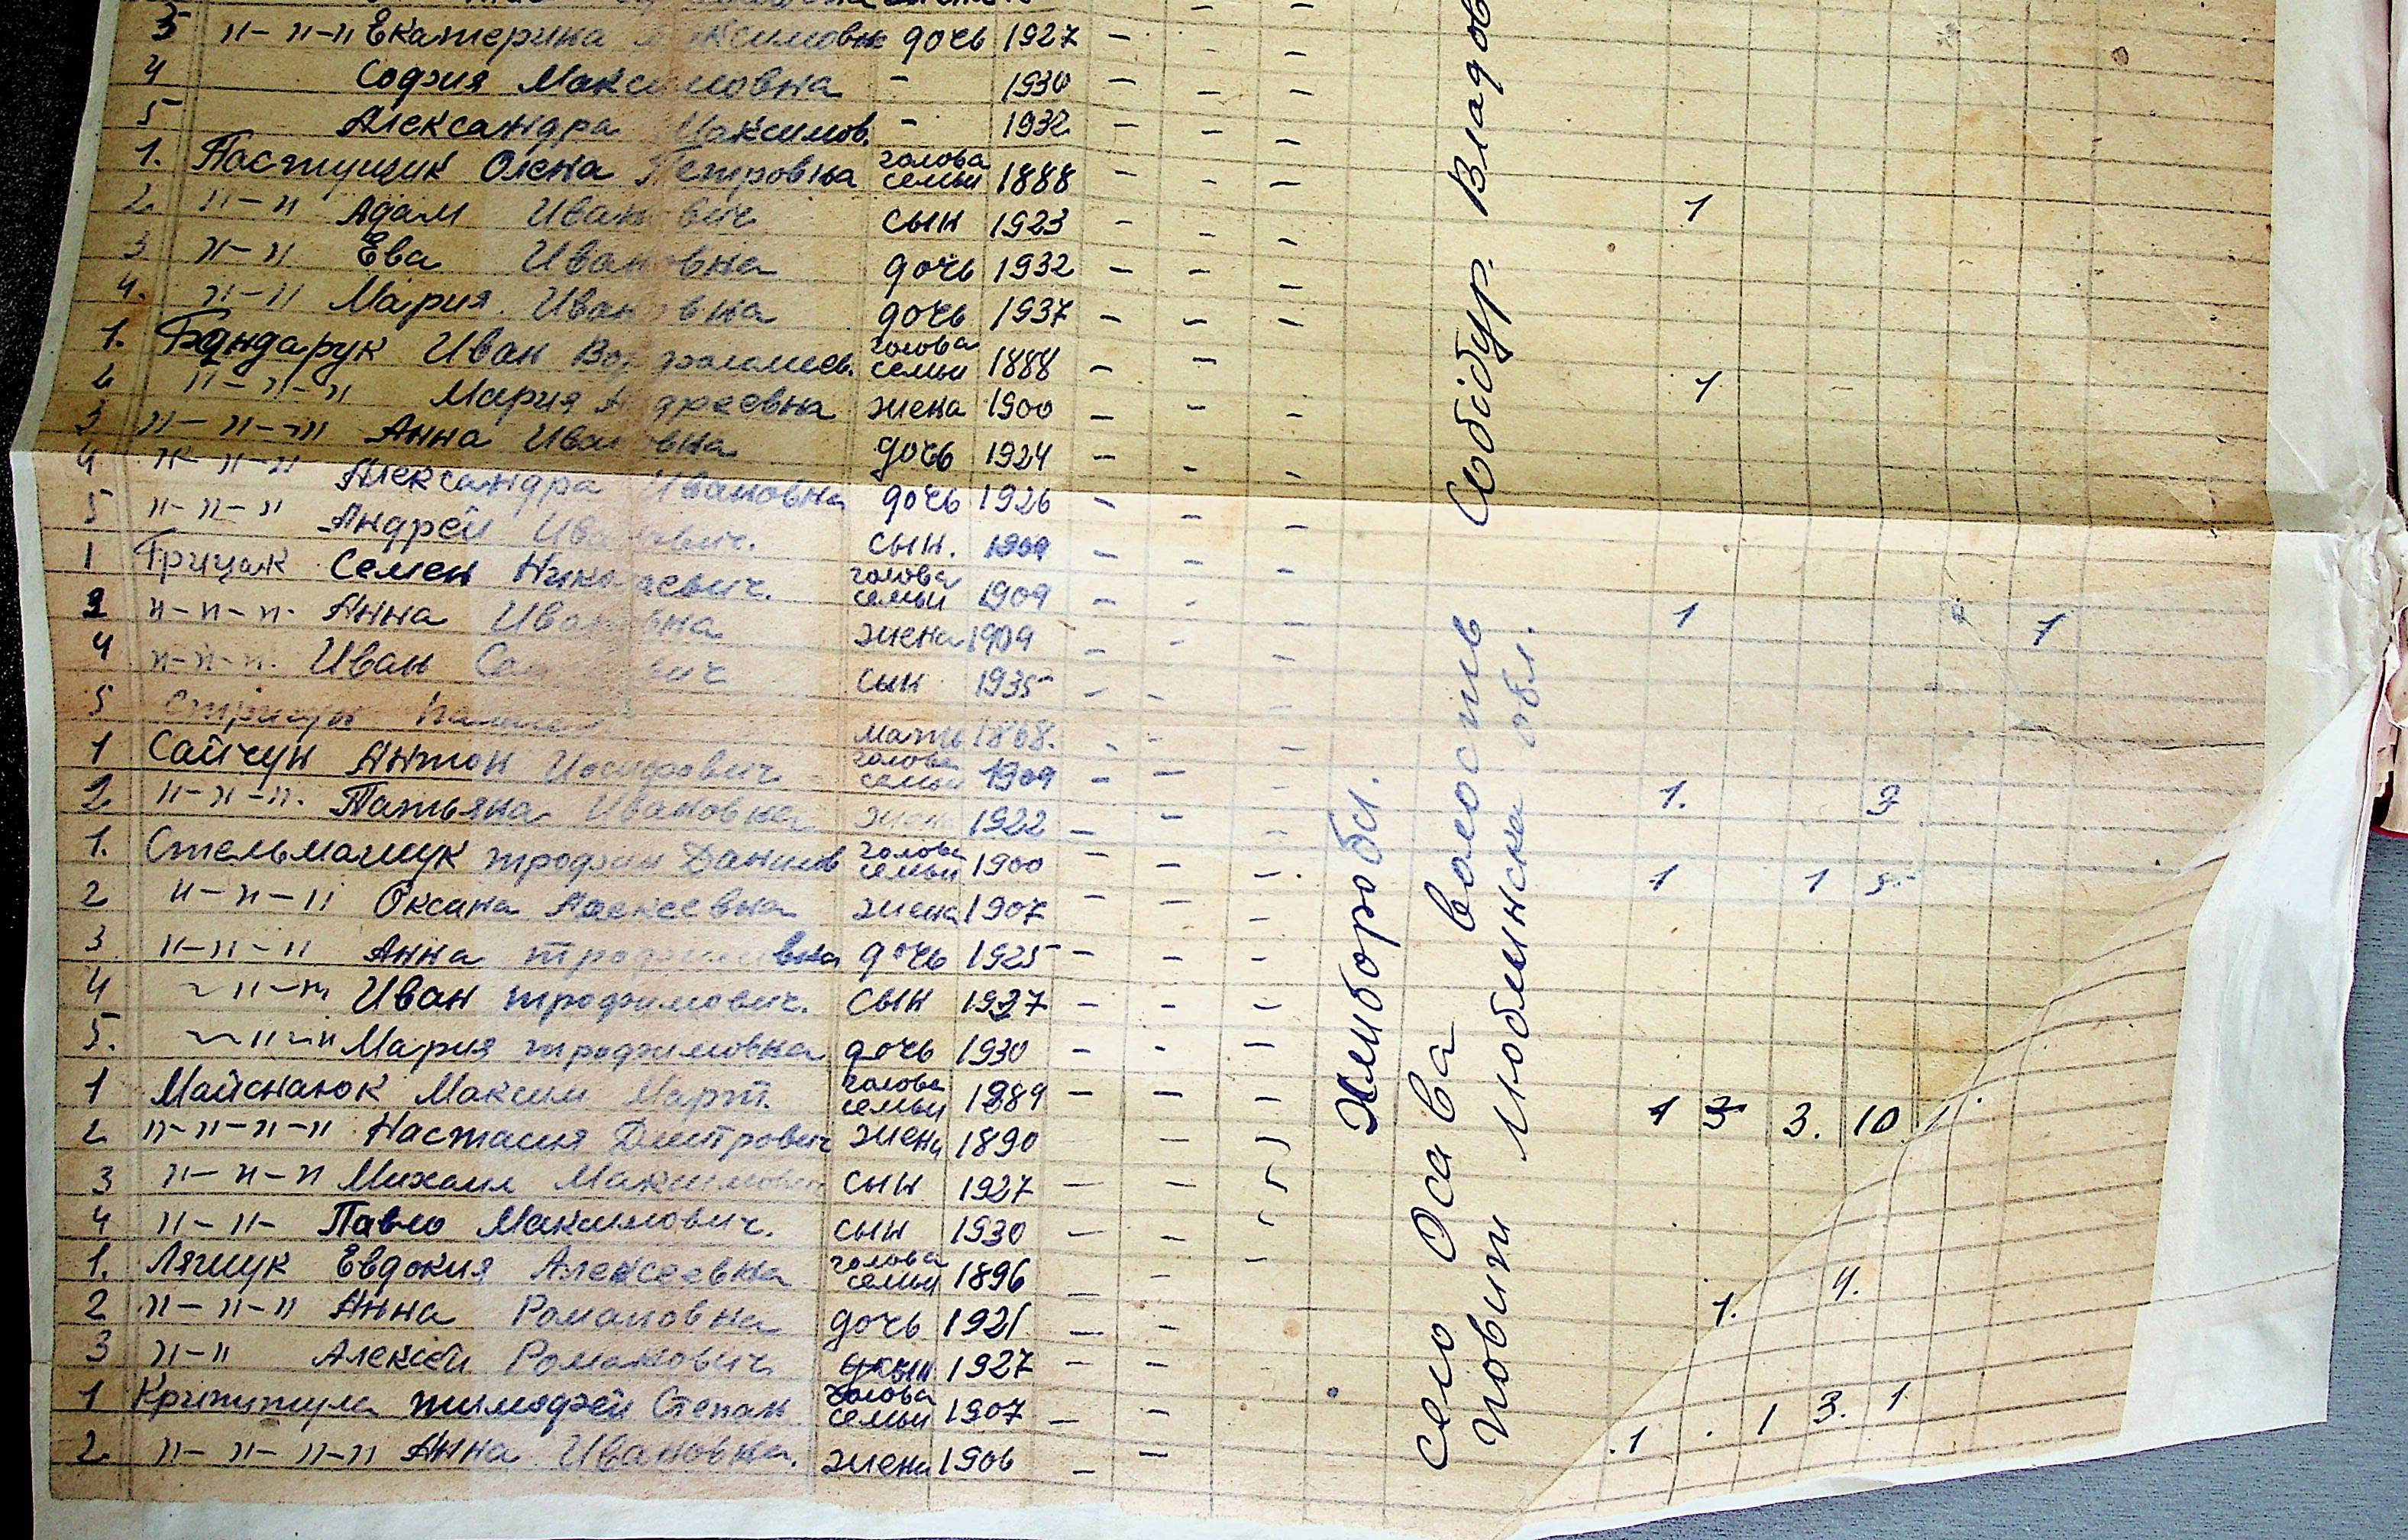 3 "-"-" Екатерина Максимовна дочь 1927 - - -
4 София Максимовна - 1930 - - -
5 Александра Максимов. - 1932 - - -
1. Пастущик Олена Петровна голова семьи 1888 - - -
2. "-" Адам Иванович сын 1923 - - - 1
3 "-" Ева Ивановна дочь 1932 - - -
4. "-" Мария Ивановна дочь 1937 - - -
1. Бондарук Иван Варфаламеев. голова семьи 1888 - -
2 "-"-" Мария Андреевна жена 1900 - - - 1
3 "-"-" Анна Ивановна дочь 1924 - - -
4 "-"-" Александра Ивановна дочь 1926 - - -
5 "-"-" Андрей Иванович. сын. - - -
1 Грицак Семен Николаевич. голова семьи 1909 - - 1 1
2 "-"-" Анна Ивановна жена 1909 - - -
4 "-"-". Иван Семенович сын 1935 - -
5 мать 1868. - - -
1 Сайчун Антон Иосифович голова семьи 1909 - - - 1.
2 "-"-". Татьяна Ивановна жена 1922 - - -
1. Стельмашук трофим Данилов голова семьи 1900 - - - 1 1
2 "-"-" Оксана Алексеевна жена 1907 - - -
3 "-"-" Анна трофимовна дочь 1925 - - -
4 "-" Иван трофимович. сын 1927 - - -
5. "-" Мария трофимовна дочь 1930 - - -
1 Майснаюк Максим Март. голова семьи 1889 - - - 1 3 3. 10
2 "-"-"-" Настасия Дмитрович жена 1890 -
3 "-"-" Михаил Максимович сын 1927 - -
4 "-"- Павло Максимович. сын 1930 - -
1. Лящук Евдокия Алексеевна голова семьи 1896 - 1. 4.
2 "-"-" Анна Романовна дочь 1921 - -
3 "-" Алексей Романович сын 1927 - -
1 тимофей Степан голова семьи 1907 - - .1 . 1 3. 1
2. "-"-"-" Анна Ивановна. жена 1906 - -
Хлибороби.
село Осава волость Собібур. Владов
повит Любелинска обл.